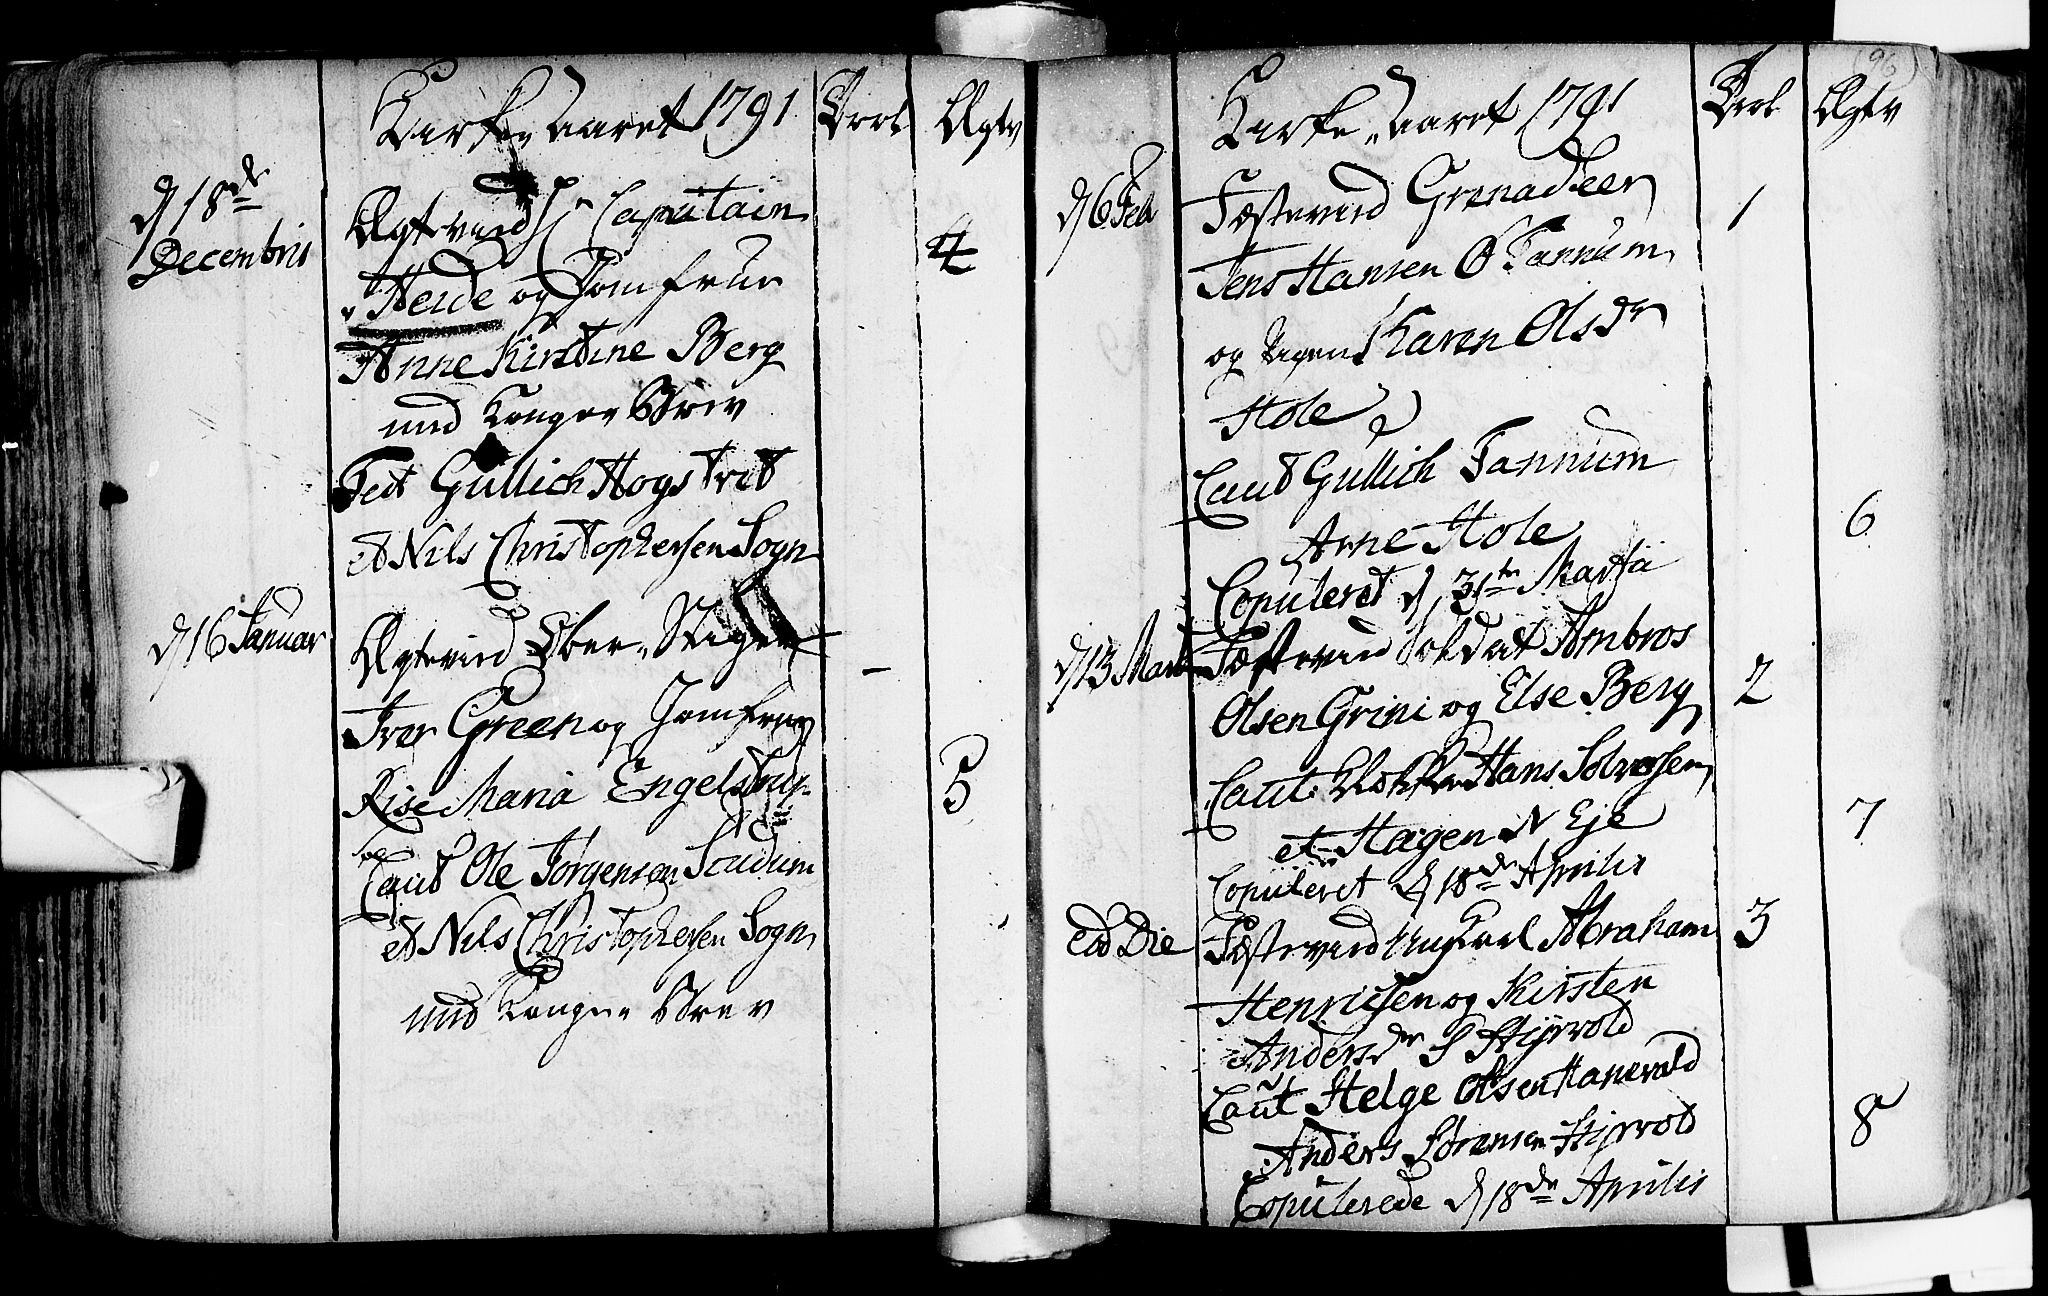 Kirke Aaret 1791
Trol
Ægtv
d 18de
Decembris
Ægtevied Hr Capitain
v Heide og Jomfrue
Anne Kirstine Berg
med Konge Brev
Test Gullich Hogstvet
et Nils Christophersen Sogn
4
d 16 Januar
Ægtevied Ober-Stiger
Iver Green og Jomfrue
Lise Maria Engelstrup
Caut Ole Jörgensen Scudum
et Nils Christophersen Sogn
med Konge Brev
5
(96)
Kirke Aaret 1791
Trol
Ægtv
d 6 Feb
Fæstevied Grenadeer
Jens Hansen Ø Fannum
og Pigen Karen Olsdr
Hole
Caut Gullich Fannum
Arne Hole
Copuleret d 31te Martii
1
6
d 13 Mart
Fæstevied Soldat Ambros
Olsen Grini og Else Berg
Caut Klokker Hans Solvesen
et Hagen N Eje
Copuleret d 18de Aprilis
2
7
Eod Die
Fæstevied Ungkarl Abraham
Henrichsen og Kirsten
Andersdr S Styrvold
Caut Helge Olsen Hanevold
Anders Sörensen Styrvold
Copulerede d 18de Aprilis
3
8